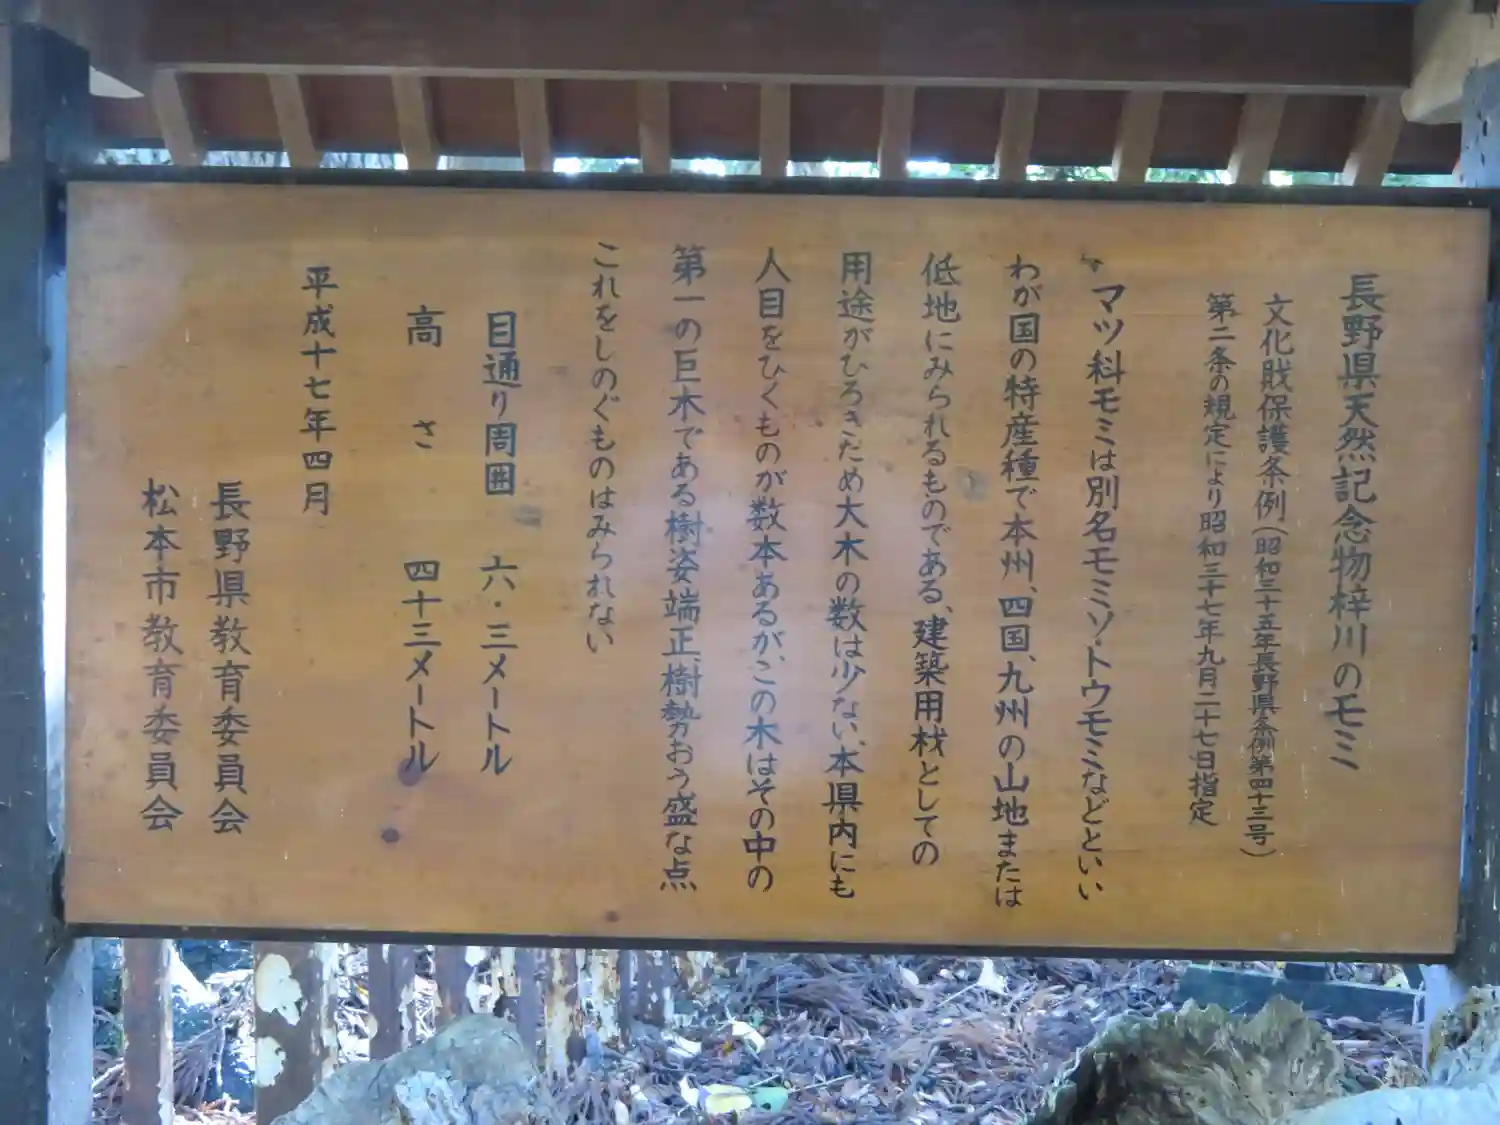 長野県天然記念物梓川のモミ
文化財保護条例（昭和三十五年長野県条例第四十三号）
第二条の規定により昭和三十七年九月二十七日指定
マツ科モミは別名モミソ、トウモミなどといい
わが国の特産種で本州、四国、九州の山地または
低地にみられるものである、建築用材としての
用途がひろきため大木の数は少ない、本県内にも
人目をひくものが数本あるが、この木はその中の
第一の巨木である樹姿端正、樹勢おう盛な点
これをしのぐものはみられない
目通り周囲　六・三メートル
高さ　四十三メートル
平成十七年四月
長野県教育委員会
松本市教育委員会